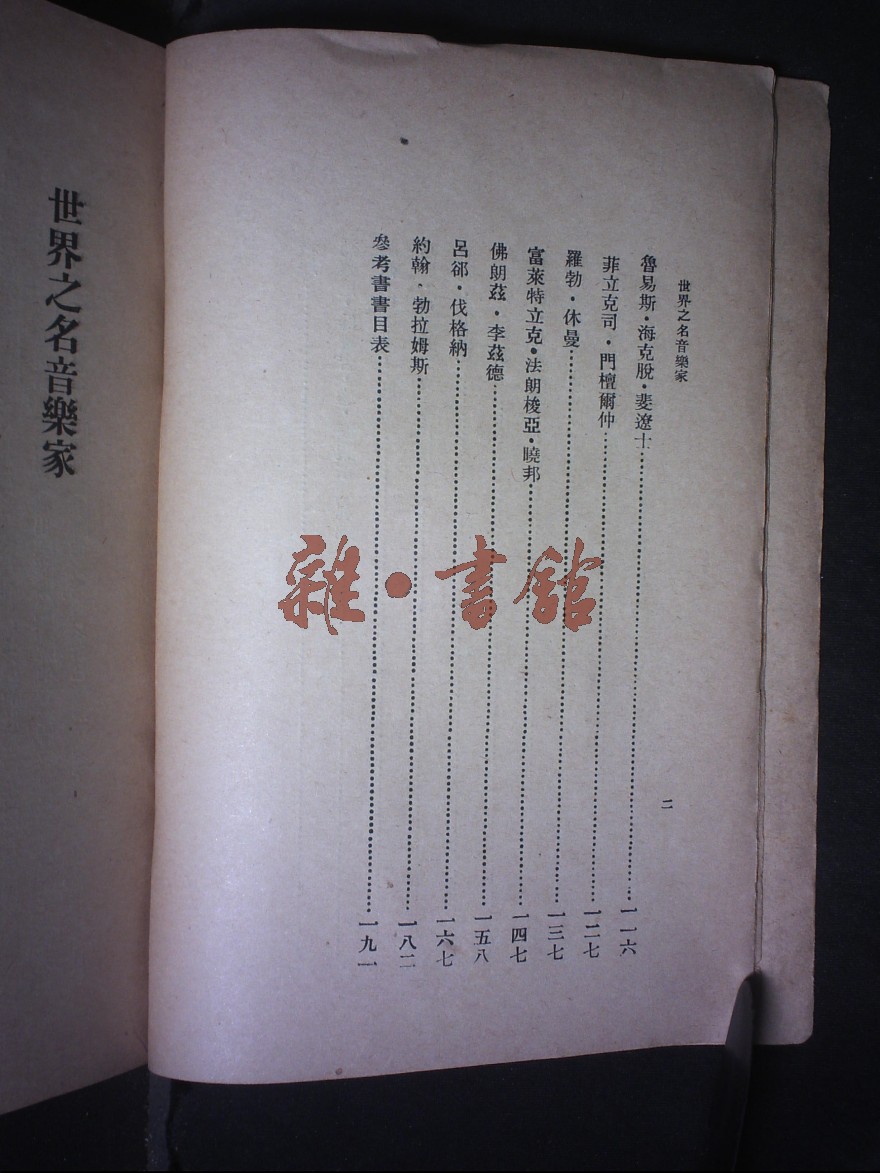 世界之名音樂家
魯易斯·海克脫·斐遼士……一一六
菲立克司·門檀爾仲……一二七
羅勃·休曼……一三七
富萊特立克·法朗梭亞·曉邦……一四七
佛朗茲·李茲德……一五八
呂邰·伐格納……一六七
約翰·勃拉姆斯……一八二
參考書書目表……一九一
二
世界之名音樂家
雜·書館